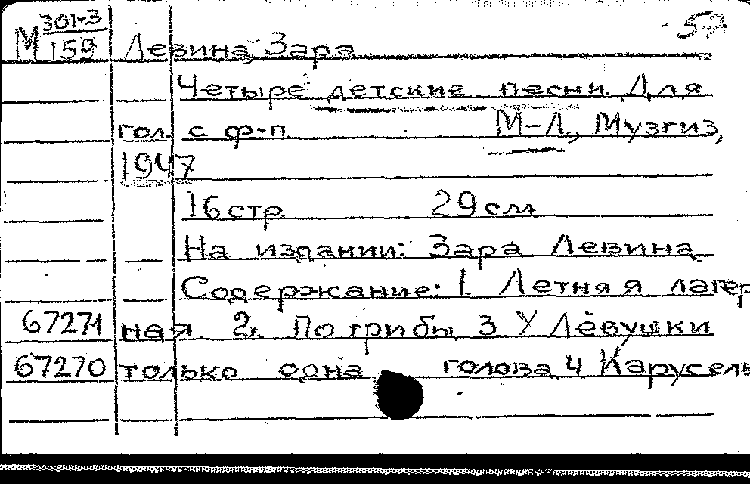 М 301-3 57
159 Левина, Зара
Четыре детские песни. Для
гол. с ф-п М-Л, Музгиз,
1947
16 стр 29 см
На издании: Зара Левина.
Содержание: 1. Летняя лагер
67271 ная 2. По грибы 3 У Лёвушки
67270 только одна голова 4 Карусель